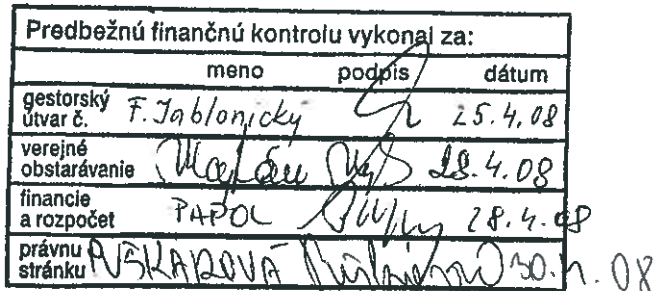 Predbežnú finančnú kontrolu vykonal za:
meno podpis dátum
gestorský
útvar č. F. Jablonický 25.4.08
verejné
obstarávanie 28.4.08
financie
a rozpočet PAPOL 28.4.08
právnu
stránku PUŠKÁROVÁ 30.4.08